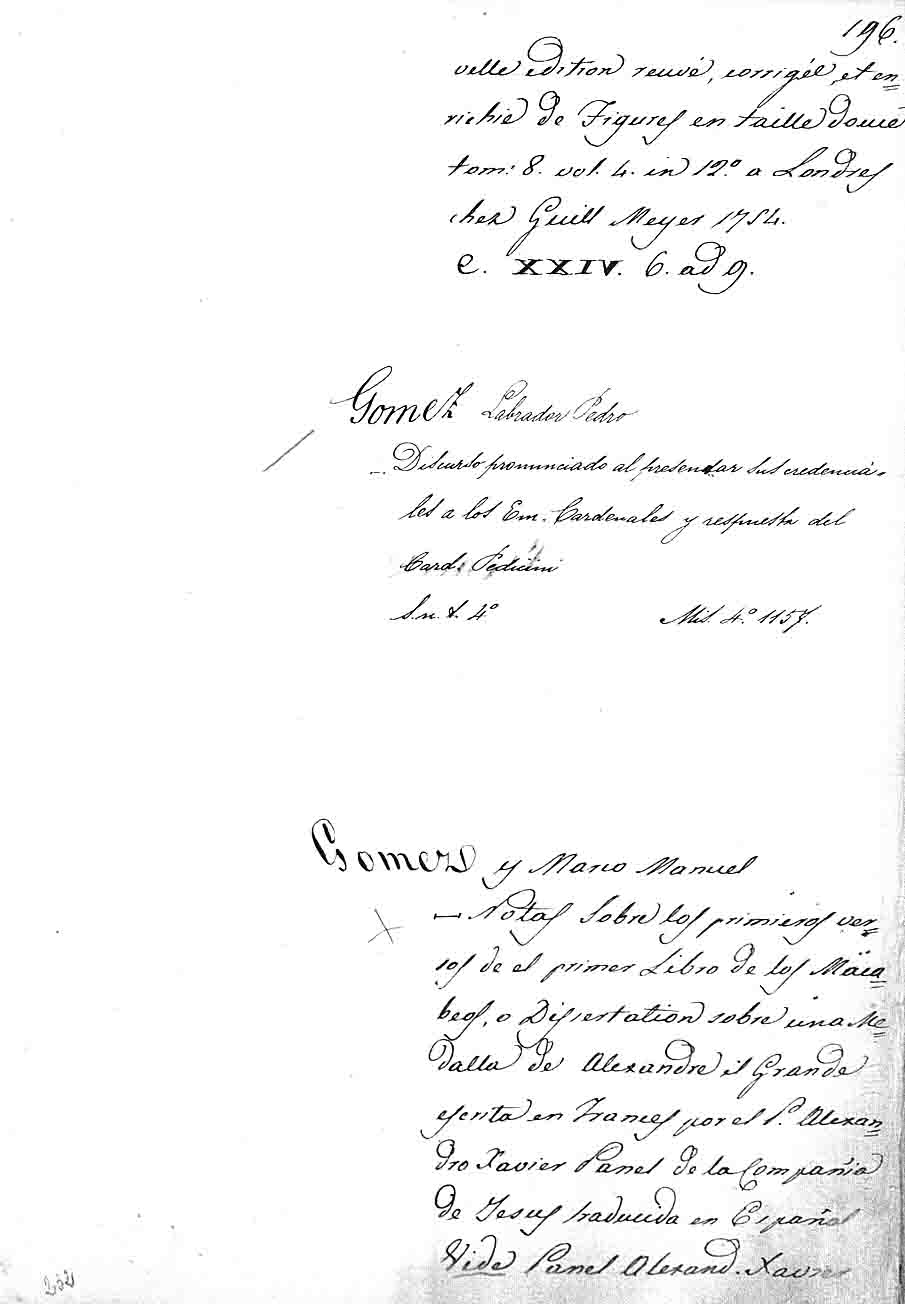 196.
velle edition reuvé, corrigéé, et en=
richie de Figures en taille doucé
tom: 8. vol. 4. in 12.º a Londres
chez Guill Meyer 1754.
C. XXIV. 6. ad 9.
Gomez Labrador Pedro
— Discurso pronunciado al presentar sus credenciá-
les a los Em. Cardenales y respuesta del
Card. Pedicini
S. n. t. 4º
Mis. 4º. 1157.
Gomez y Marco Manuel
— Notas Sobre los primieros ver=
sos de el primer Libro de los Maca=
beos, o Dissertation sobre una Me=
dalla de Alexandre il Grande
escrita en Frances por el P. Alexan=
dro Xavier Panel de la Compañia
de Jesus traducida en Español
Vide Panel Alexand. Xavier
232